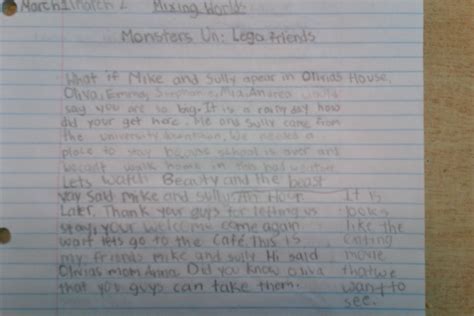 March 1/March 2 Mixing World
Monsters Un: Lego friends
What if Mike and Sully apear in Olivias House,
Oliva, Emma, Stephanie, Mia, Andrea would
say you are so big. It is a rainy day how
did your get here. Me and Sully came from
the university downtown, We needed a
place to stay because school is over and
we cant walk home in this bad weather.
Lets watch Beauty and the beast
yay said Mike and sully. An Hour
Later, Thank your guys for letting us
stay, your welcome come again
wait lets go to the cafe. This is
my friends Mike and sully Hi said
Olivias mom Anna. Did you know Oliva
that you guys can take them.
It is
looks
like the
movie
that we
want to
see.